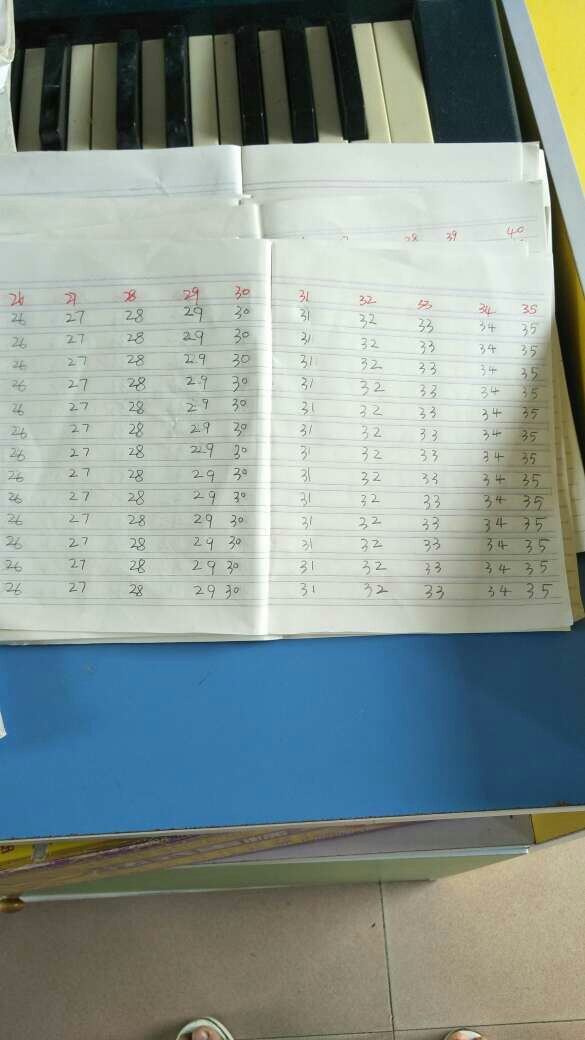 39 40
26 27 28 29 30 31 32 33 34 35
26 27 28 29 30 31 32 33 34 35
26 27 28 29 30 31 32 33 34 35
26 27 28 29 30 31 32 33 34 35
26 27 28 29 30 31 32 33 34 35
26 27 28 29 30 31 32 33 34 35
26 27 28 29 30 31 32 33 34 35
26 27 28 29 30 31 32 33 34 35
26 27 28 29 30 31 32 33 34 35
26 27 28 29 30 31 32 33 34 35
26 27 28 29 30 31 32 33 34 35
26 27 28 29 30 31 32 33 34 35
26 27 28 29 30 31 32 33 34 35